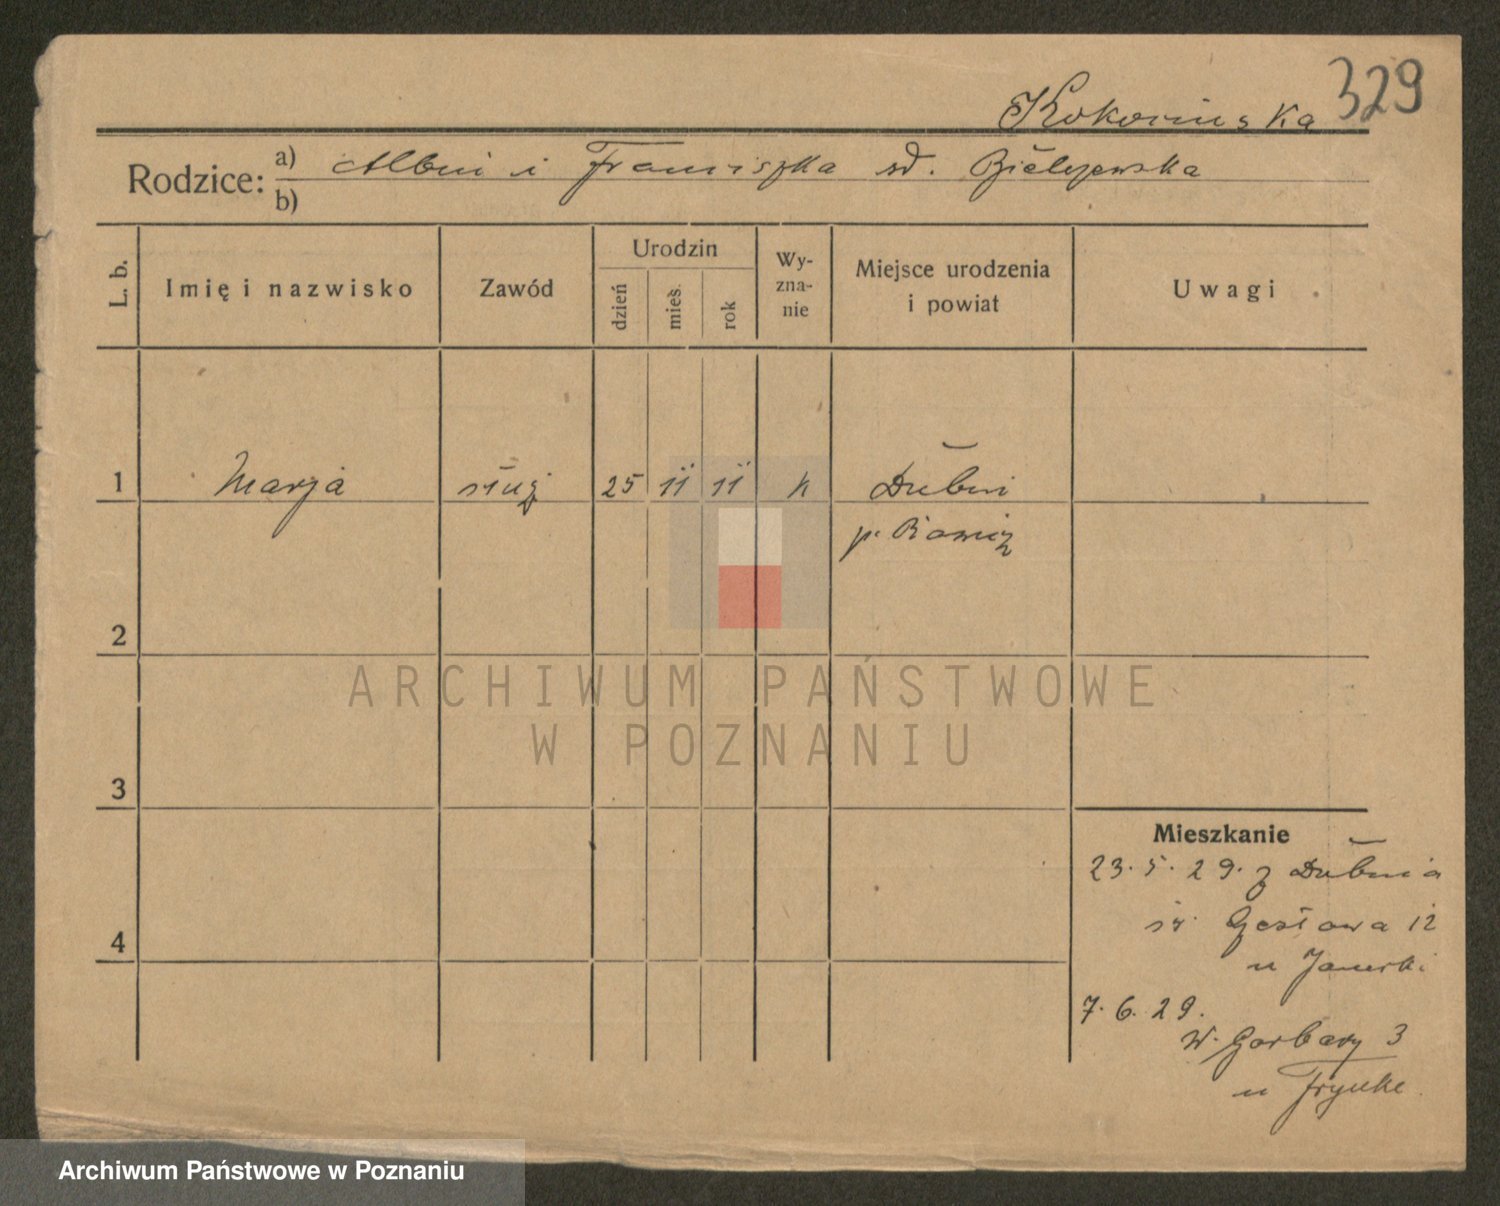 329
Rodzice: a) Albin i Franciszka
b)
L. b.
Imię i nazwisko
Zawód
Urodzin
dzień
mies.
rok
Wy-
zna-
nie
Miejsce urodzenia
i powiat
Uwagi
1 Marja służ 25 11 11 k Dubin
p. Rawicz
2
3
4
ARCHIWUM PAŃSTWOWE
W POZNANIU
Mieszkanie
23. 5. 29. z Dubina
12
u
7. 6. 29.
W. Garbary 3
u
Archiwum Państwowe w Poznaniu